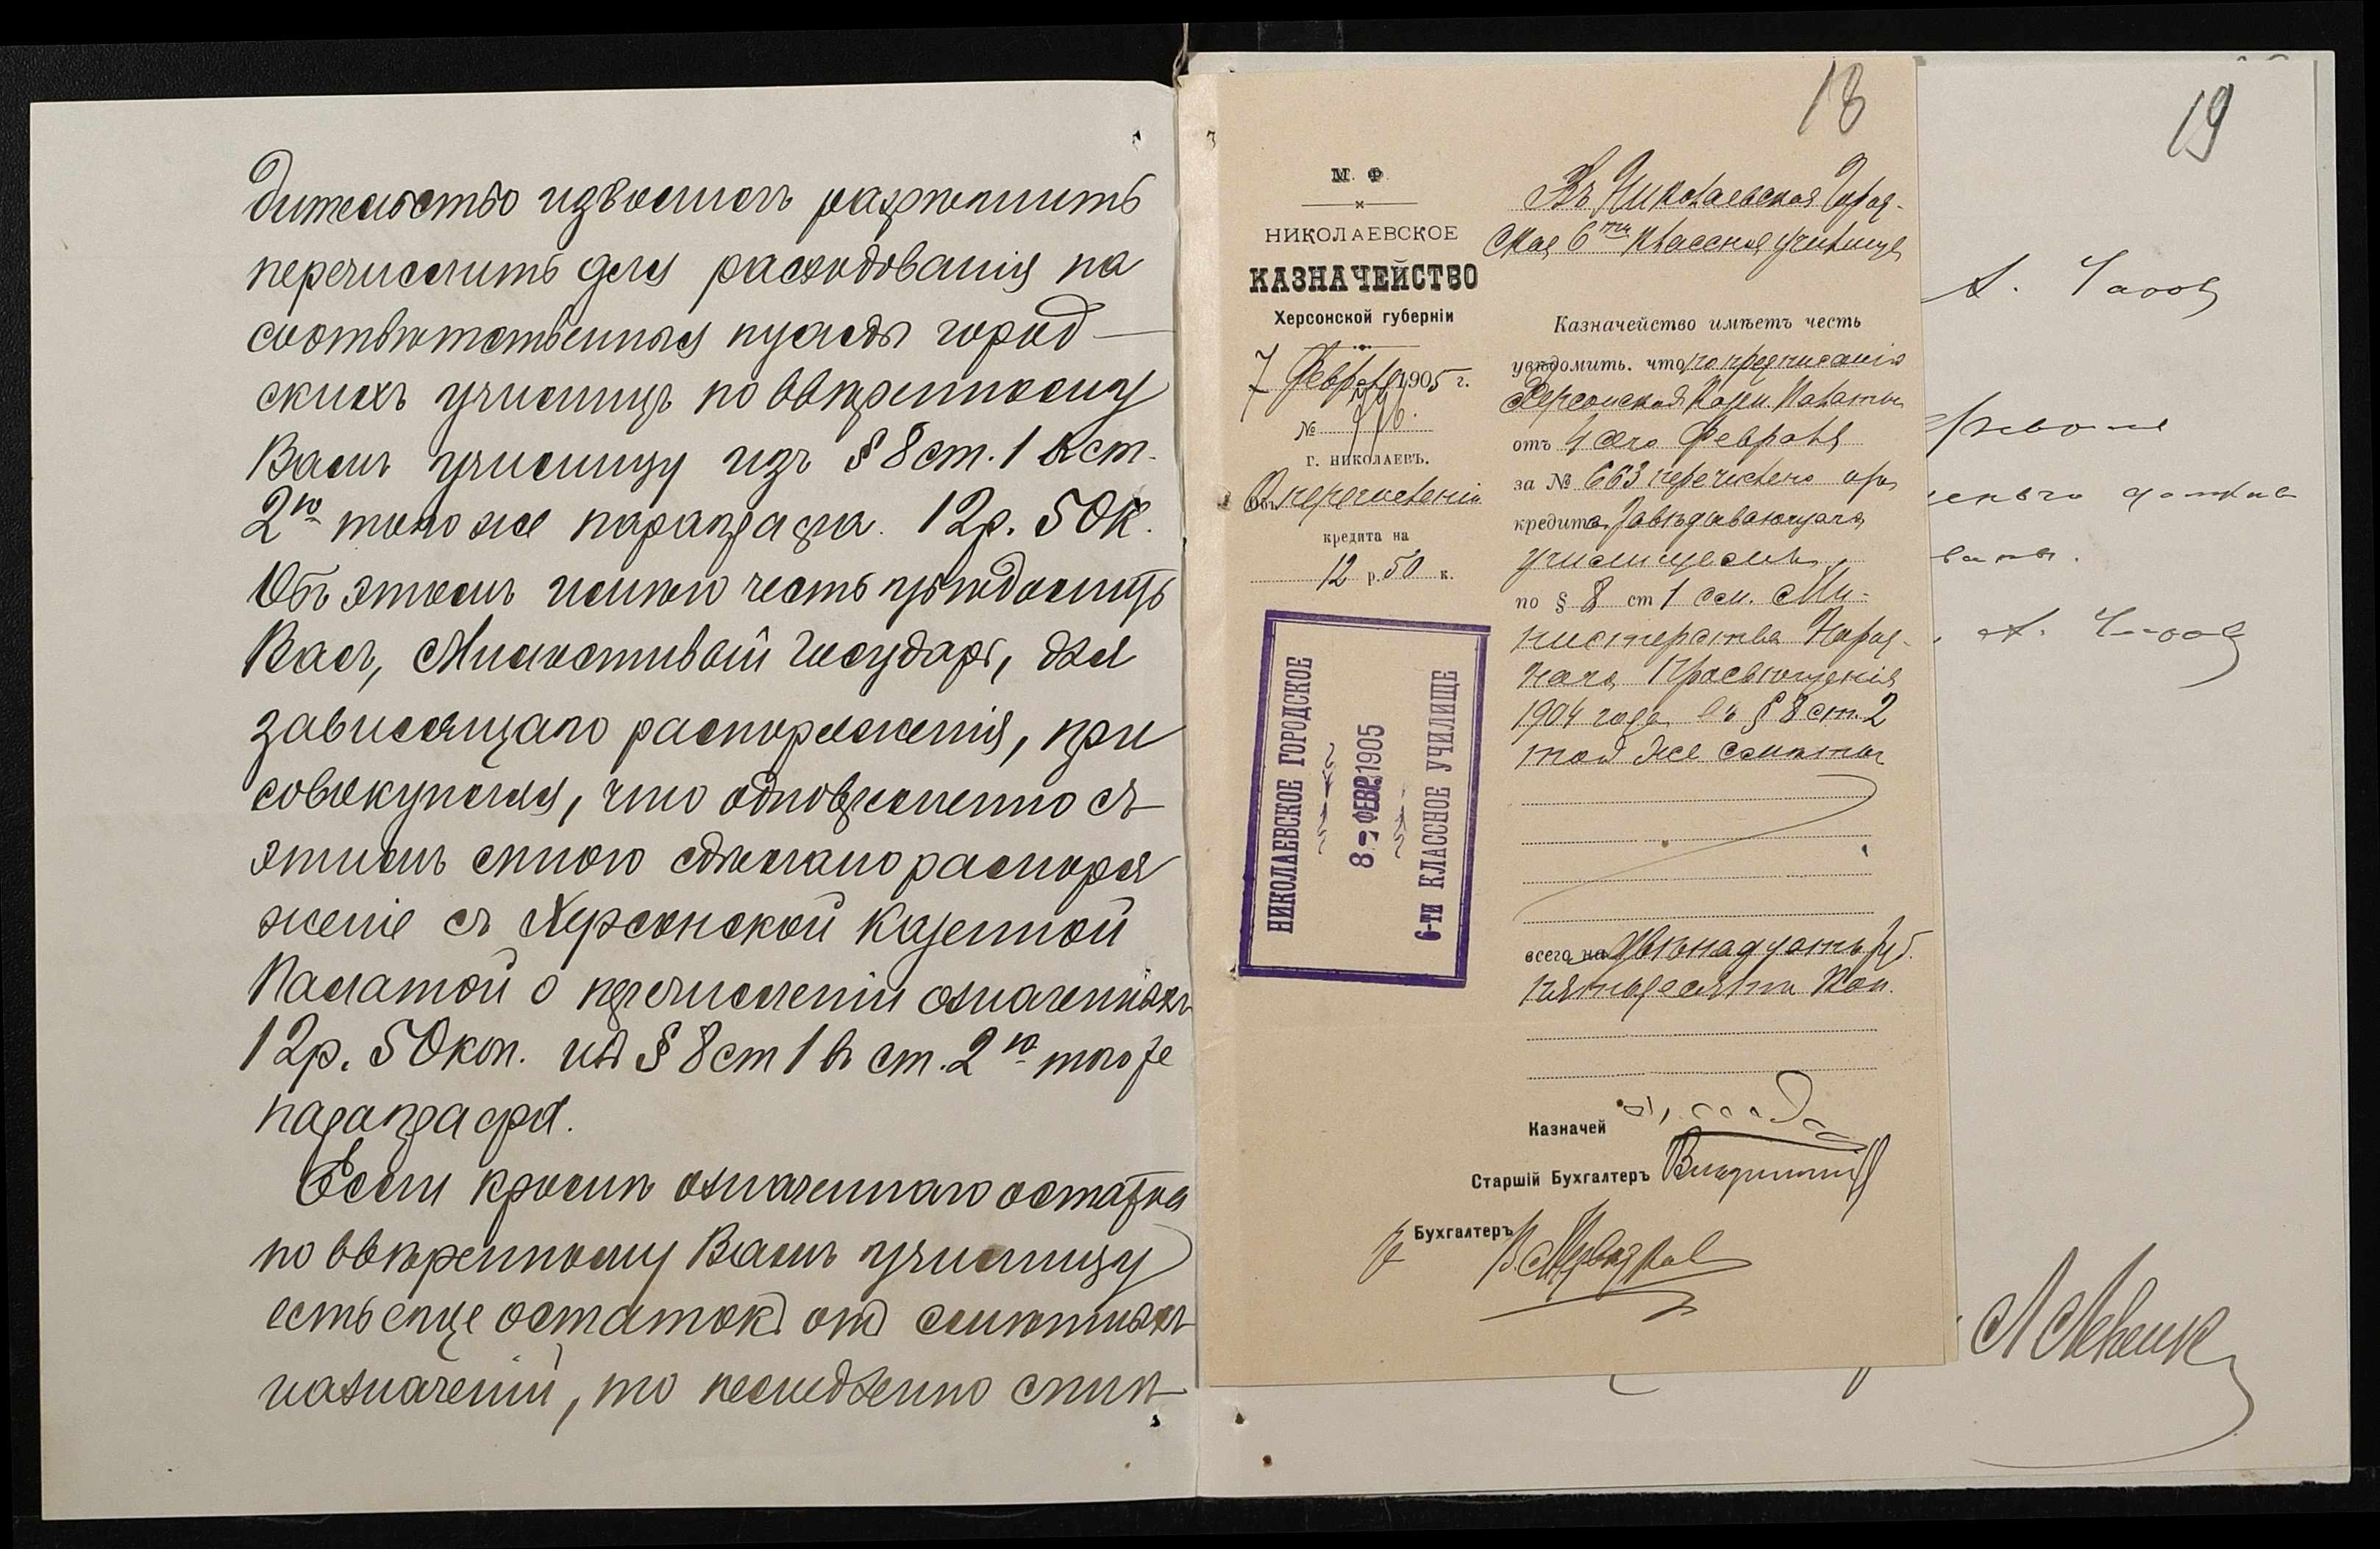 дительство изволилъ разрѣшить
перечислить для расходованія на
соотвѣтственныя нужды город-
скихъ училищъ по ввѣренному
Вамъ училищу изъ § 8 ст. 1 въ ст.
2ю того же параграфа 12 р. 50 к.
Объ этомъ имѣю честь увѣдомить
Васъ, Милостивый Государь, для
зависящаго распоряженія, при
совокупляя, что одновременно съ
этимъ мною сдѣлано распоря
женіе съ Херсонской Казенной
Палатой о перечисленіи означенныхъ
12 р. 50 коп. изъ § 8 ст 1 въ ст. 2ю того же
параграфа.
Если кромѣ означеннаго остатка
по ввѣренному Вамъ училищу
есть еще остатокъ отъ смѣтныхъ
назначеній, то немедленно
18
М. Ф.
НИКОЛАЕВСКОЕ
КАЗНАЧЕЙСТВО
Херсонской губерніи
7 Февраля 1905 г.
№
г. НИКОЛАЕВЪ.
Объ перечисленіи
кредита на
12 р. 50 к.
НИКОЛАЕВСКОЕ ГОРОДСКОЕ
8 - ФЕВР 1905
6-ТИ КЛАССНОЕ УЧИЛИЩЕ
Въ Николаевское Город-
ское 6ти классное училище
Казначейство имѣетъ честь
увѣдомить, что по предписанію
Херсонской Казен. Палаты
отъ 4 сего Февраля
за № 663 перечислено изъ
кредита Завѣдывающаго
училищемъ
по § 8 ст 1 см. Ми-
нистерства Народ-
наго Просвѣщенія
1904 года въ § 8 ст. 2
той же смѣты
всего на двѣнадцать руб.
пятьдесятъ коп.
Казначей
Старшій Бухгалтеръ
Бухгалтеръ
19
А.